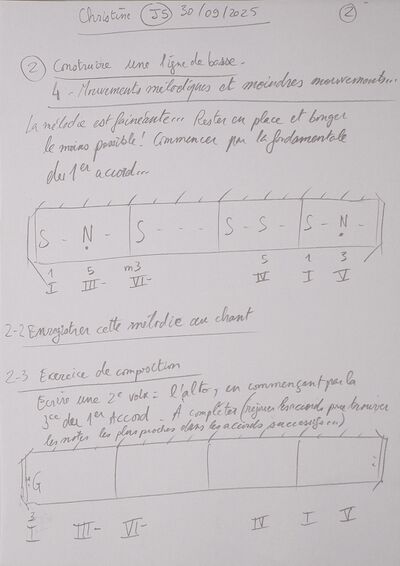 Christine J5 30/09/2025 2
2 Construire une ligne de basse.
4 - Mouvements mélodiques et moindres mouvements...
La mélodie est fainéante... Rester en place et bouger
le moins possible! Commencer par la fondamentale
du 1er accord...
S - N - S - - - S - S - S - N -
1 5 m3 5 1 3
I III- VI- IV I V
2-2 Enregistrer cette mélodie au chant
2-3 Exercice de composition
Ecrire une 2e voix = l'alto, en commençant par la
3ce du 1er Accord. A compléter (rejouer les accords pour trouver
les notes les plus proches dans les accords successifs...)
G
3
I III- VI- IV I V